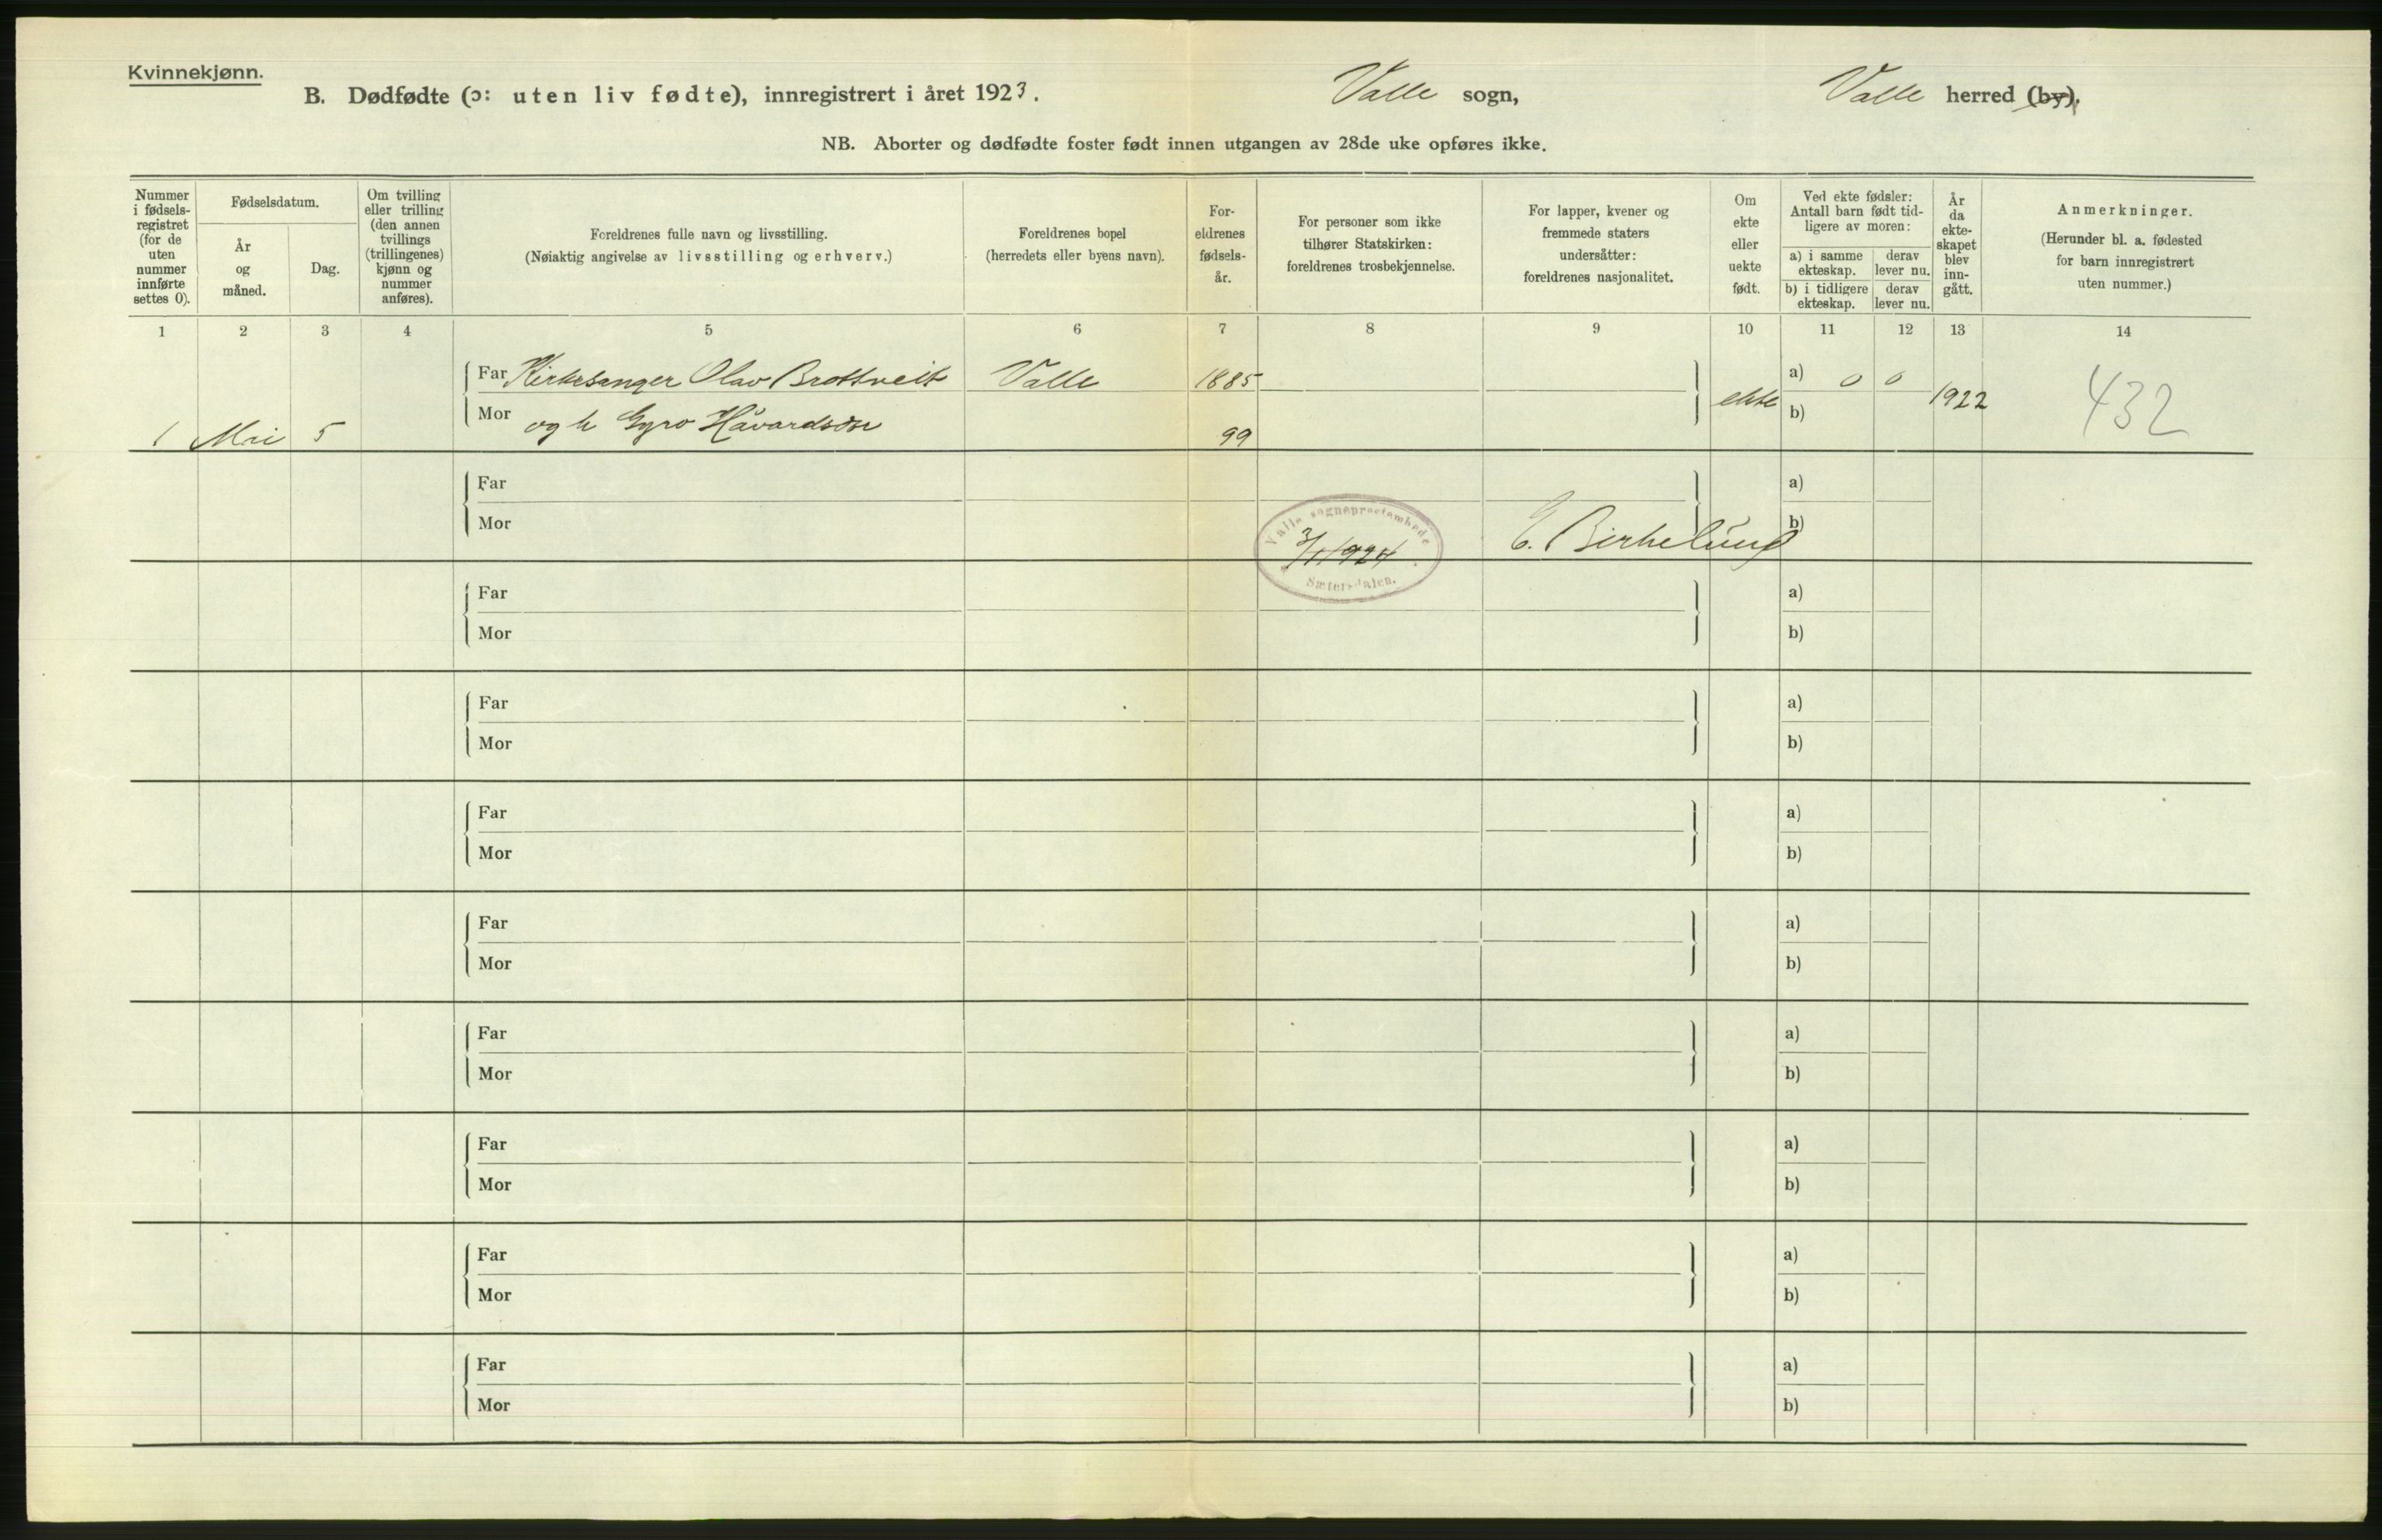 Kvinnekjønn.
B. Dødfødte (ɔ: uten liv fødte), innregistrert i året 1923. Valle sogn, Valle herred (by).
NB. Aborter og dødfødte foster født innen utgangen av 28de uke opføres ikke.
Nummer i fødsels-registret (for de uten nummer innførte settes 0).
Fødselsdatum.
År og måned.
Dag.
Om tvilling eller trilling (den annen tvillings (trillingenes) kjønn og nummer anføres).
Foreldrenes fulle navn og livsstilling.
(Nøiaktig angivelse av livsstilling og erhverv.)
Foreldrenes bopel
(herredets eller byens navn).
For-eldrenes fødsels-år.
For personer som ikke tilhører Statskirken: foreldrenes trosbekjennelse.
For lapper, kvener og fremmede staters undersåtter: foreldrenes nasjonalitet.
Om ekte eller uekte født.
Ved ekte fødsler: Antall barn født tid-ligere av moren:
a) i samme ekteskap. derav lever nu.
b) i tidligere ekteskap. derav lever nu.
År da ekte-skapet blev inn-gått.
Anmerkninger.
(Herunder bl. a. fødested for barn innregistrert uten nummer.)
1 2 3 4 5 6 7 8 9 10 11 12 13 14
Far Kirkesanger Olav Brottveit Valle 1885 a) 0 0
Mor og h Gyro Håvardsdr 99 ekte b) 1922 432
1 Mai 5
Far a)
Mor b)
Valle sogneprestembede
3/1 1924 E. Birkelund
Sætersdalen.
Far a)
Mor b)
Far a)
Mor b)
Far a)
Mor b)
Far a)
Mor b)
Far a)
Mor b)
Far a)
Mor b)
Far a)
Mor b)
Far a)
Mor b)